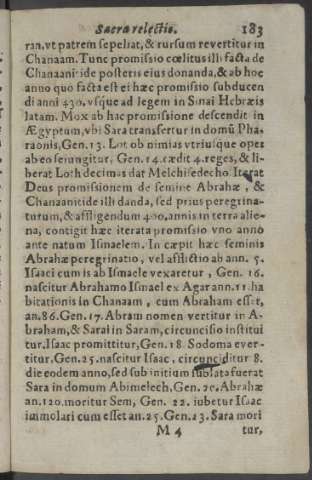 Sacra relectio. 183
ran, vt patrem sepeliat, & rursum revertitur in
Chanaam. Tunc promissio cœlitus illi facta de
Chanaanitide posteris eius donanda, & ab hoc
anno quo facta est ei hæc promissio subducen
di anni 430. vsque ad legem in Sinai Hebræis
latam. Mox ab hac promissione descendit in
Ægyptum, vbi Sara transfertur in domū Pha-
raonis, Gen. 13. Lot ob nimias vtriusque opes
ab eo seiungitur, Gen. 14. cædit 4. reges, & li-
berat Loth decimas dat Melchisedecho Iterat
Deus promissionem de semine Abrahæ, &
Chanaanitide illi danda, sed prius peregrina-
turum, & affligendum 400. annis in terra alie-
na, contigit hæc iterata promissio vno anno
ante natum Ismaelem. In cæpit hæc seminis
Abrahæ peregrinatio, vel afflictio ab ann. 5.
Isaaci cum is ab Ismaele vexaretur, Gen. 16.
nascitur Abrahamo Ismael ex Agar ann. 11. ha
bitationis in Chanaam, cum Abraham esset,
an. 86. Gen. 17. Abram nomen vertitur in A-
braham, & Sarai in Saram, circuncisio institui
tur. Isaac promittitur, Gen. 18. Sodoma ever-
titur. Gen. 25. nascitur Isaac, circunciditur 8.
die eodem anno, sed sub initium sublata fuerat
Sara in domum Abimelech, Gen. 20. Abrahæ
an. 120. moritur Sem, Gen. 22. iubetur Isaac
immolari cum esset an. 25. Gen. 23. Sara mori
M 4 tur,